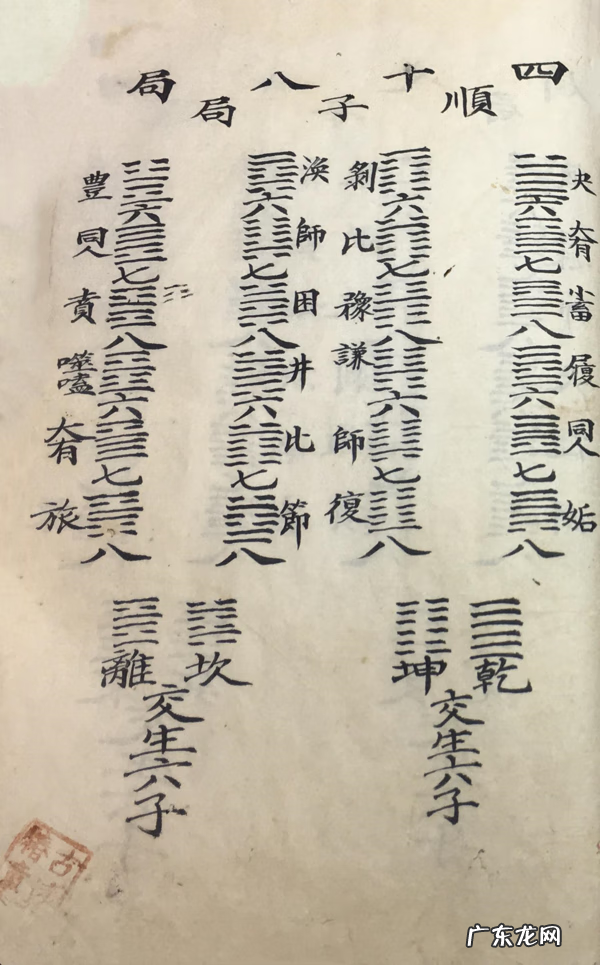 四十八局
順子局
夬
大有
小畜
履
同人
姤
六
七
八
六
七
八
剝
比
豫
謙
師
復
六
七
八
六
七
八
渙
師
困
井
比
節
六
七
八
六
七
八
豊
同人
賁
噬嗑
大有
旅
六
七
八
六
七
八
乾
坤
交生六子
坎
離
交生六子
广东龙网